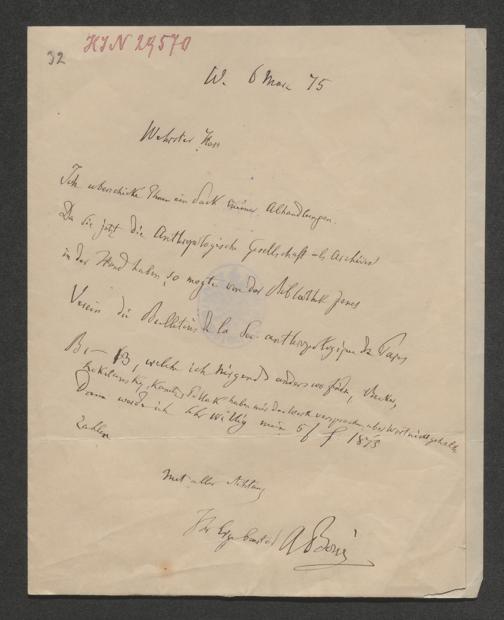 32
HIN 29570
W. 6 März 75
Wehrter Herr
Ich überschicke Ihnen ein Pack meiner Abhandlungen.
Da Sie jetzt die Anthropologische Gesellschaft als Archivar
in der Hand haben, so mogte von der Bibliothek jenes
Verein die Bulletins de la Soc anthropologique de Paris
B, welche ich nirgends anderswo finden,
haben mir das versprochen, aber Wort nicht gehalten
Dann werde ich sehr willig mein 5 f f 1875
zahlen
Mit aller Achtung
Ihr Ergebenster A Boué